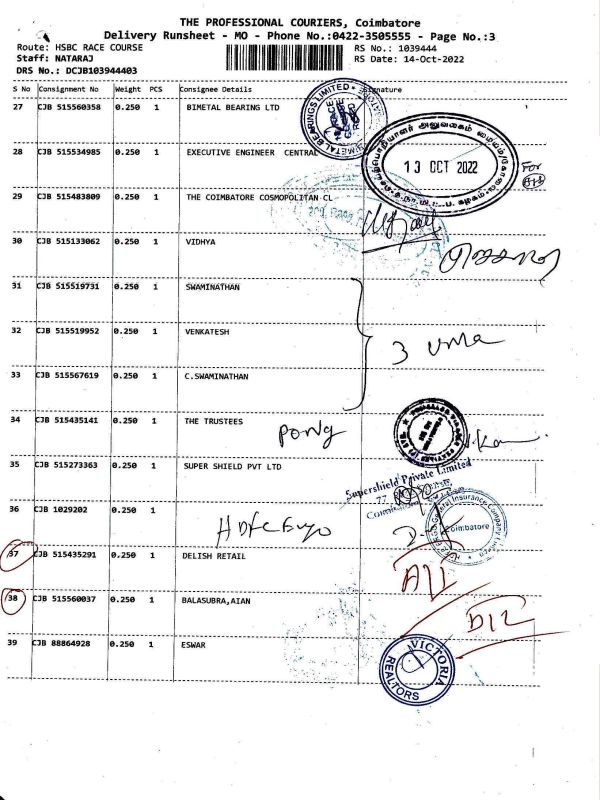 THE PROFESSIONAL COURIERS, Coimbatore
Delivery Runsheet - MO - Phone No.:0422-3505555 - Page No.:3
Route: HSBC RACE COURSE RS No.: 1039444
Staff: NATARAJ RS Date: 14-Oct-2022
DRS No.: DCJB103944403
S No Consignment No Weight PCS Consignee Details Signature
27 CJB 515560358 0.250 1 BIMETAL BEARING LTD
BIMETAL BEARINGS LIMITED
28 CJB 515534985 0.250 1 EXECUTIVE ENGINEER CENTRAL
13 OCT 2022
For
29 CJB 515483809 0.250 1 THE COIMBATORE COSMOPOLITAN CL
30 CJB 515133062 0.250 1 VIDHYA
31 CJB 515519731 0.250 1 SWAMINATHAN
32 CJB 515519952 0.250 1 VENKATESH
3 uma
33 CJB 515567619 0.250 1 C.SWAMINATHAN
34 CJB 515435141 0.250 1 THE TRUSTEES
Pong
35 CJB 515273363 0.250 1 SUPER SHIELD PVT LTD
Supershield Private Limited
77
36 CJB 1029202 0.250 1
General Insurance Company Limited
Coimbatore
37 CJB 515435291 0.250 1 DELISH RETAIL
38 CJB 515560037 0.250 1 BALASUBRA,AIAN
D12
39 CJB 88864928 0.250 1 ESWAR
VICTORIA
REALTORS